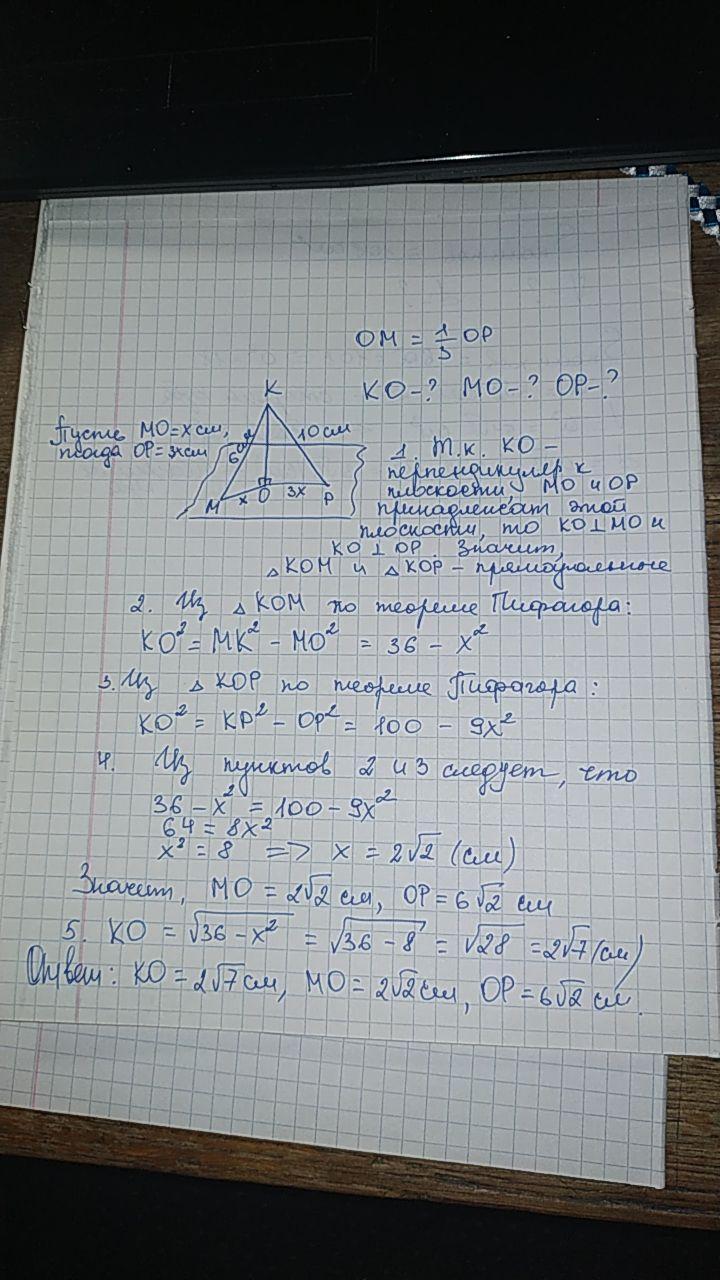 OM = 1/3 OP
KO-? MO-? OP-?
K
Пусть MO=x см,
тогда OP=3x см
10 см
6 см
M x O 3x P
1. Т.к. KO –
перпендикуляр к
плоскости, MO и OP
принадлежат этой
плоскости, то KO⊥MO и
KO ⊥ OP. Значит,
△KOM и △KOP – прямоугольные
2. Из △KOM по теореме Пифагора:
KO² = MK² – MO² = 36 – x²
3. Из △KOP по теореме Пифагора:
KO² = KP² – OP² = 100 – 9x²
4. Из пунктов 2 и 3 следует, что
36 – x² = 100 – 9x²
64 = 8x²
x² = 8 => x = 2√2 (см)
Значит, MO = 2√2 см, OP = 6√2 см
5. KO = √36 – x² = √36 – 8 = √28 = 2√7 (см)
Ответ: KO = 2√7 см, MO = 2√2 см, OP = 6√2 см.